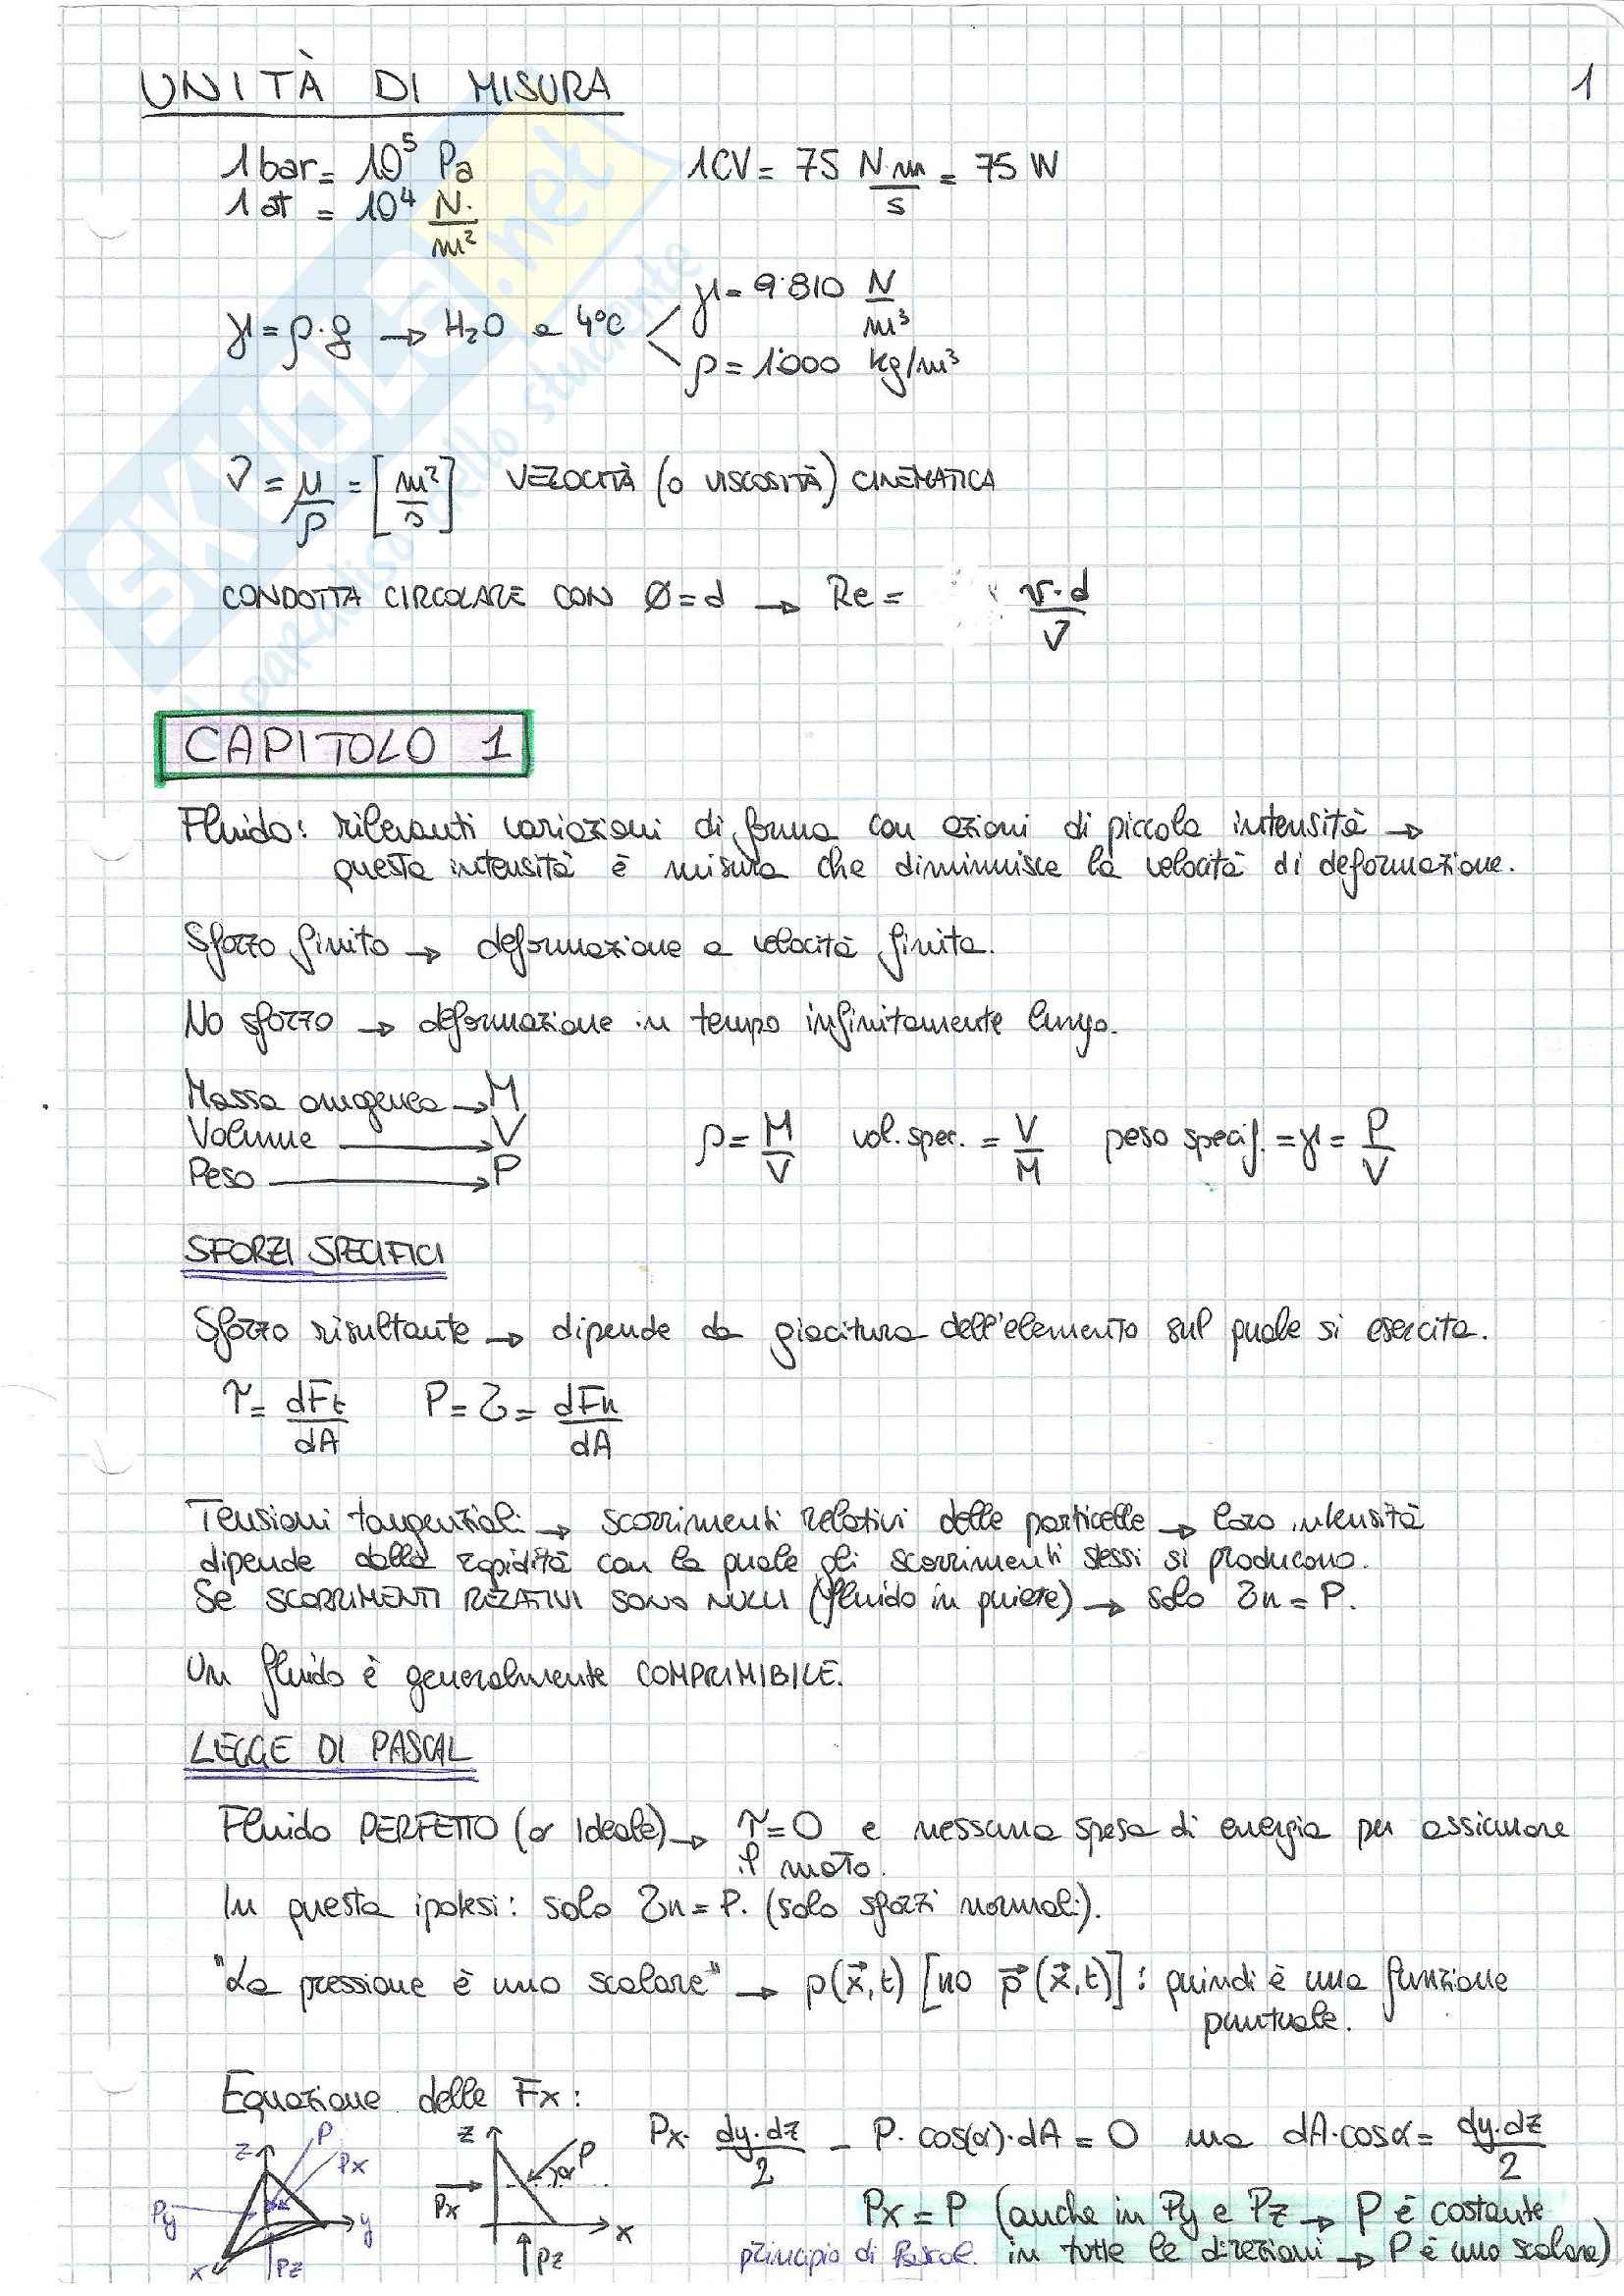 UNITÀ DI MISURA 1
1 bar = 10⁵ Pa 1CV = 75 N·m/s = 75 W
1 at = 10⁴ N/m²
γ = ρ·g → H₂O a 4°C γ = 9'810 N/m³
ρ = 1'000 kg/m³
ν = μ/ρ = [m²/s] VELOCITÀ (o VISCOSITÀ) CINEMATICA
CONDOTTA CIRCOLARE CON Ø = d → Re = v·d/ν
CAPITOLO 1
Fluido: rilevanti variazioni di forma con azioni di piccola intensità →
questa intensità è misura che diminuisce la velocità di deformazione.
Sforzo finito → deformazione a velocità finita.
No sforzo → deformazione in tempo infinitamente lungo.
Massa omogenea → M
Volume → V ρ = M/V vol. spec. = V/M peso specif. = γ = P/V
Peso → P
SFORZI SPECIFICI
Sforzo risultante → dipende da giacitura dell'elemento sul quale si esercita.
τ = dFt/dA P = σ = dFn/dA
Tensioni tangenziali → scorrimenti relativi delle particelle → loro intensità
dipende dalla rapidità con la quale gli scorrimenti stessi si producono.
Se SCORRIMENTI RELATIVI SONO NULLI (fluido in quiete) → solo σn = P.
Un fluido è generalmente COMPRIMIBILE.
LEGGE DI PASCAL
Fluido PERFETTO (o Ideale) → τ = 0 e nessuna spesa di energia per assicurare
il moto.
In questa ipotesi: solo σn = P. (solo sforzi normali).
"La pressione è uno scalare" → p(x⃗,t) [no p⃗(x⃗,t)]: quindi è una funzione
puntuale.
Equazione delle Fx:
Px · dy·dz/2 - P·cos(α)·dA = 0 ma dA·cosα = dy·dz/2
z P Px Py y x Pz
z P α Px x Pz
Px = P (anche in Py e Pz → P è costante
principio di Pascal. in tutte le direzioni → P è uno scalare)
SKUOLA.net
il paradiso dello studente